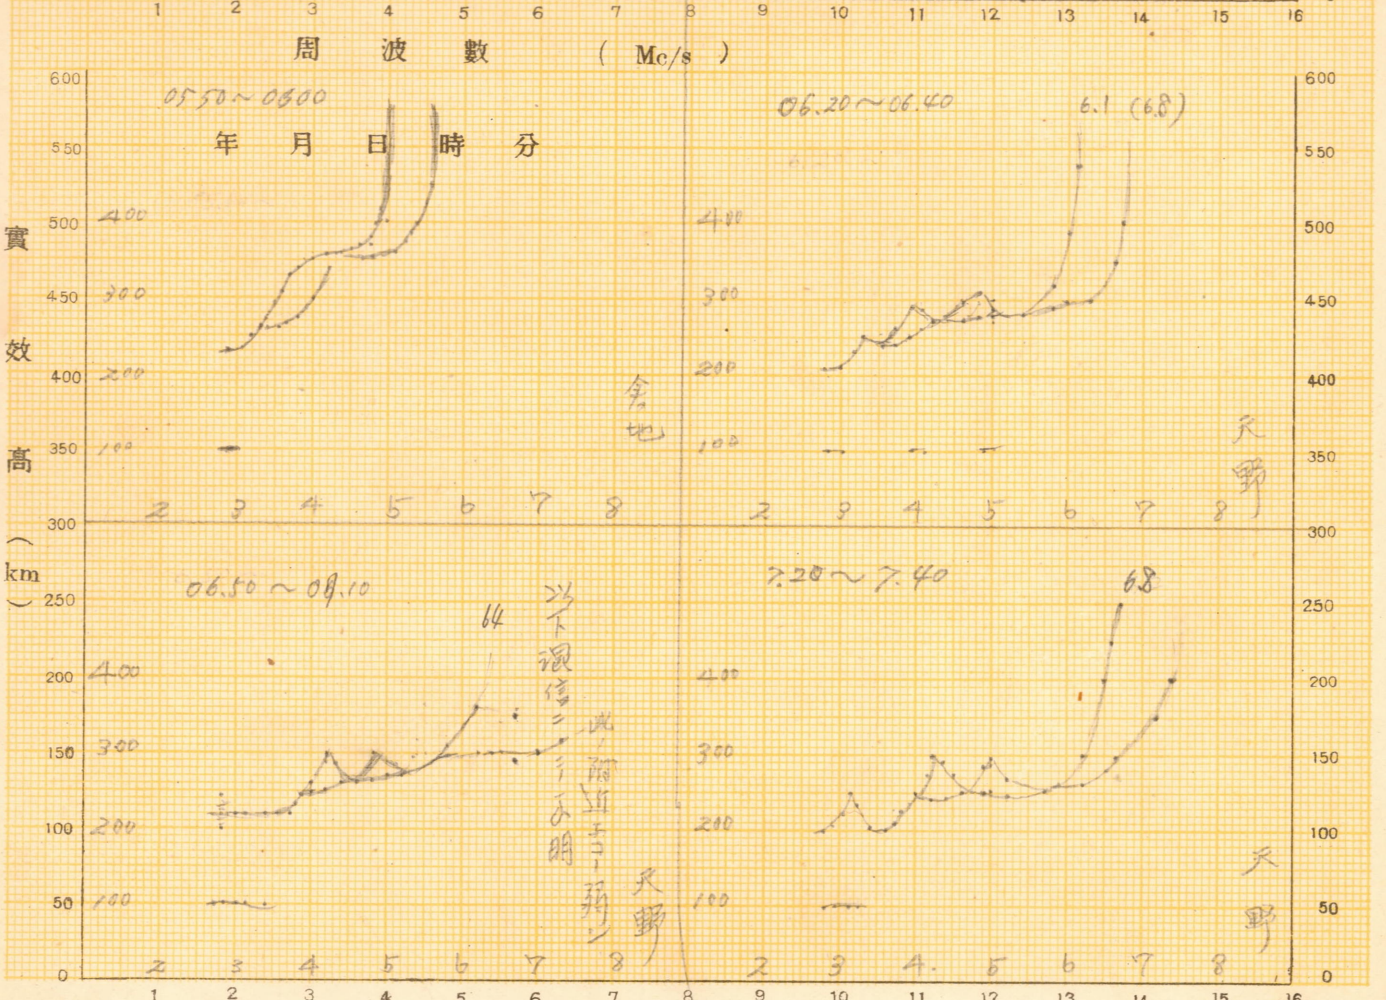 1 2 3 4 5 6 7 8 9 10 11 12 13 14 15 16
周 波 數 ( Mc/s )
年 月 日 時 分
實 效 高 ( km )
600
550
500
450
400
350
300
250
200
150
100
50
0
600
550
500
450
400
350
300
250
200
150
100
50
0
0550~0600
400
300
200
100
2 3 4 5 6 7 8
06.20~06.40
6.1 (6.8)
400
300
200
100
天野
2 3 4 5 6 7 8
06.50~
64
400
300
200
100
天野
2 3 4 5 6 7 8
7.20~7.40
68
400
300
200
100
天野
2 3 4 5 6 7 8
1 2 3 4 5 6 7 8 9 10 11 12 13 14 15 16